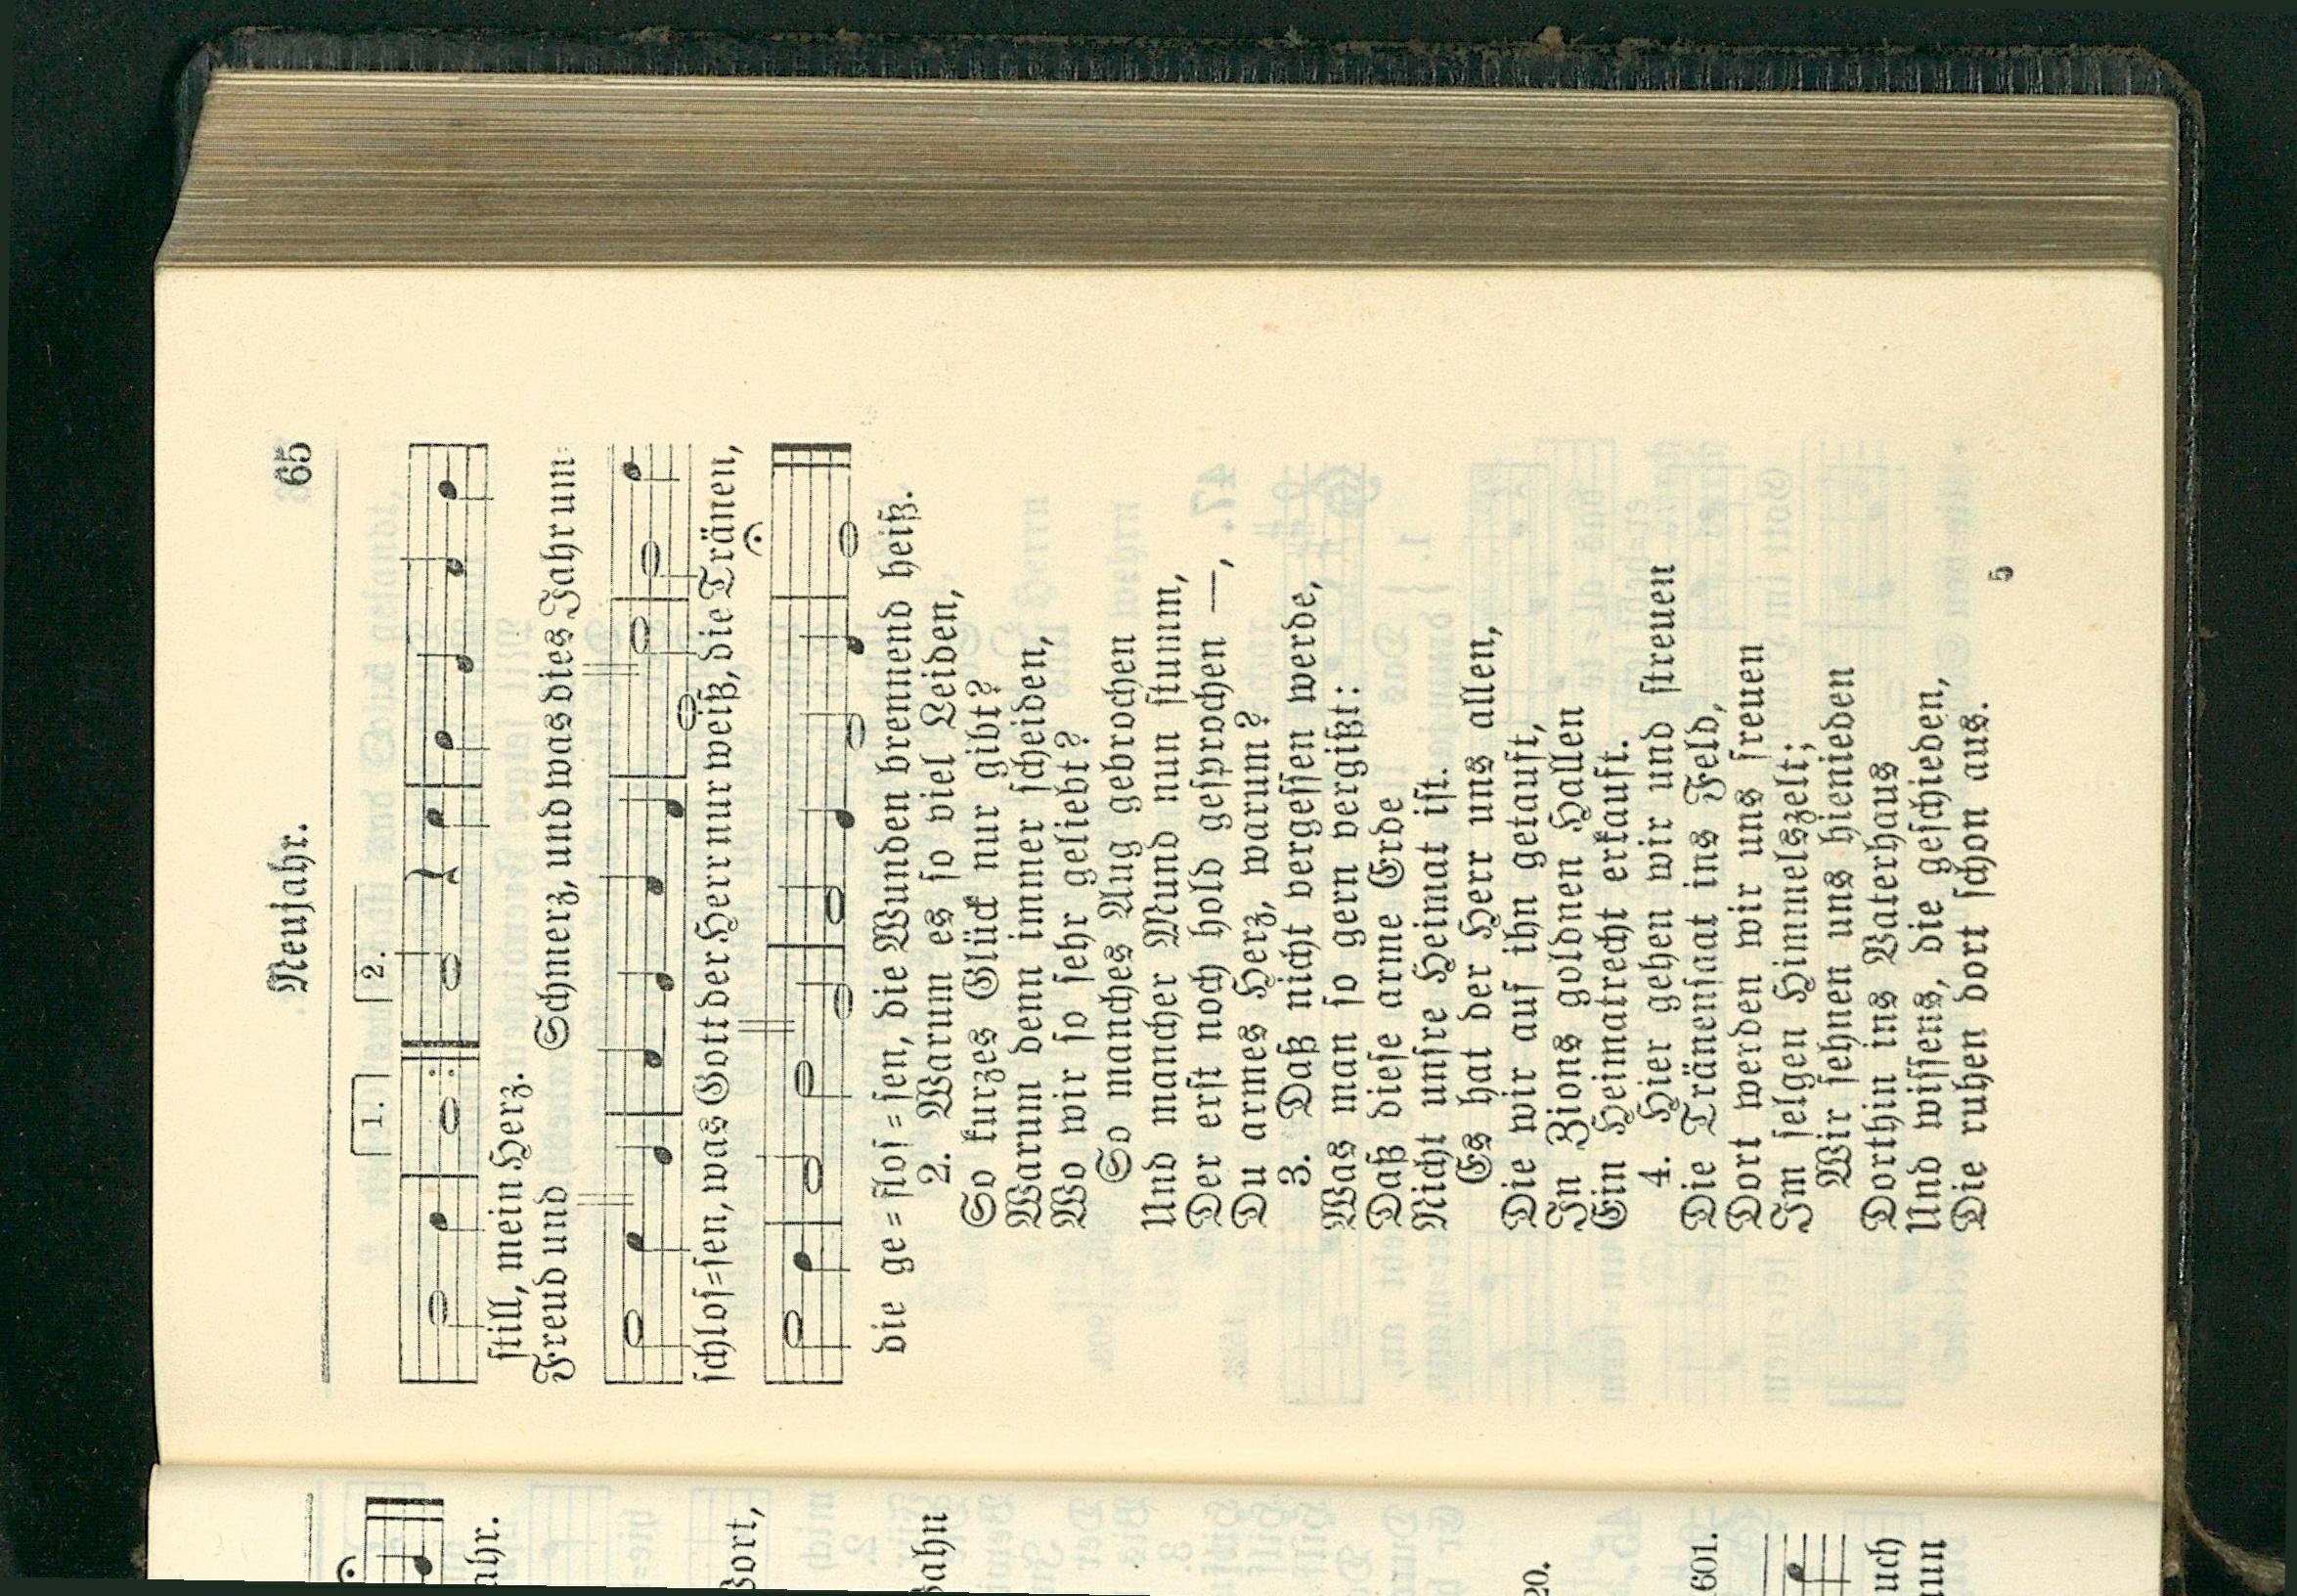 Neujahr. 65
1. 2.
ſtill, mein Herz.
Freud und Schmerz, und was dies Jahr um
ſchloſ=ſen, was Gott der Herr nur weiß, die Tränen,
die ge = floſ = ſen, die Wunden brennend heiß.
2. Warum es ſo viel Leiden,
So kurzes Glück nur gibt?
Warum denn immer ſcheiden,
Wo wir ſo ſehr geliebt?
So manches Aug gebrochen
Und mancher Mund nun ſtumm,
Der erſt noch hold geſprochen —,
Du armes Herz, warum?
3. Daß nicht vergeſſen werde,
Was man ſo gern vergißt:
Daß dieſe arme Erde
Nicht unſre Heimat iſt.
Es hat der Herr uns allen,
Die wir auf ihn getauft,
In Zions goldnen Hallen
Ein Heimatrecht erkauft.
4. Hier gehen wir und ſtreuen
Die Tränenſaat ins Feld,
Dort werden wir uns freuen
Im ſelgen Himmelszelt;
Wir ſehnen uns hienieden
Dorthin ins Vaterhaus
Und wiſſens, die geſchieden,
Die ruhen dort ſchon aus.
5
ahr.
Wort,
Bahn
20.
601.
uch